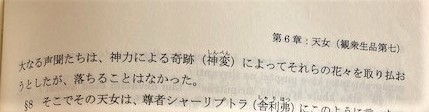 第6章:天女(観衆生品第七)
大なる声聞たちは、神力による奇跡(神変)によってそれらの花々を取り払お
うとしたが、落ちることはなかった。
§8 そこでその天女は、尊者シャーリプトラ(舎利弗)にこのように言